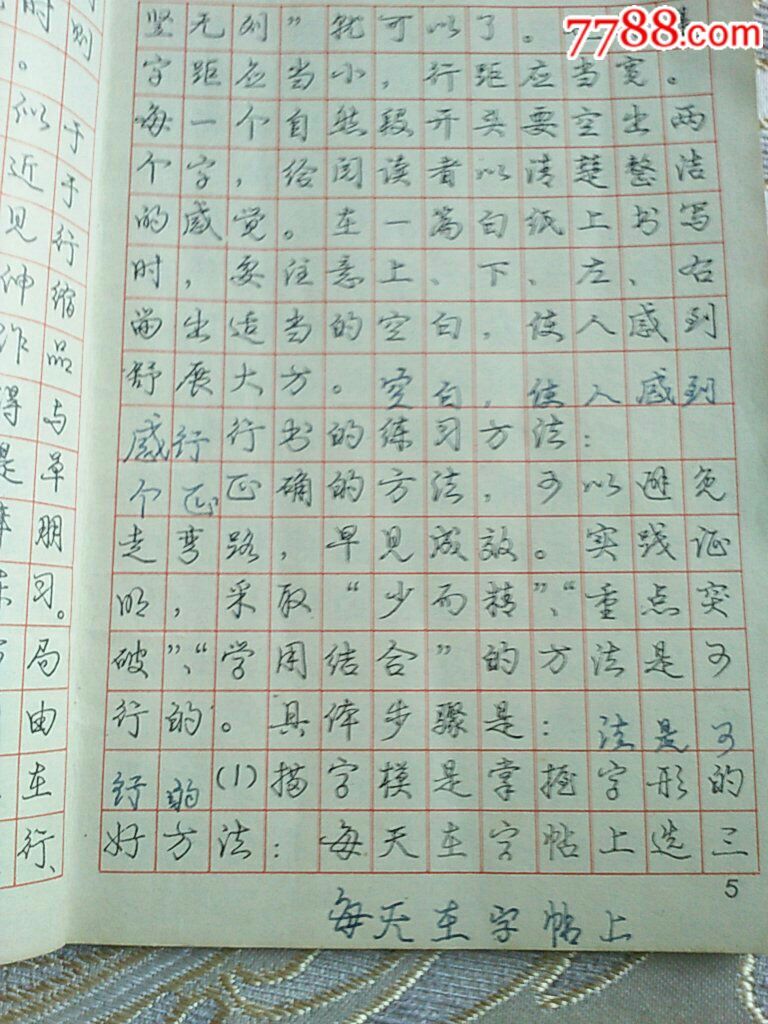 7788.com
竖无列”就可以了。
字距应当小，行距应当宽。
每一个自然段开头要空出两
个字，给阅读者以清楚整洁
的感觉。在一篇白纸上书写
时，要注意上、下、左、右
留出适当的空白，使人感到
舒展大方。空白，使人感到
感行 行书的练习方法：
个正 正确的方法，可以避免
走弯路，早见成效。实践证
明，采取“少而精”、“重点突
破”、“学用结合”的方法是可
行的。具体步骤是：法是可
行的 (1)描字模是掌握字形的
好方法：每天在字帖上选三
5
每天在字帖上
时则
。
似于
近于
见行
伸缩
作品
得与
是草
朋
习。
局
由
在
行、